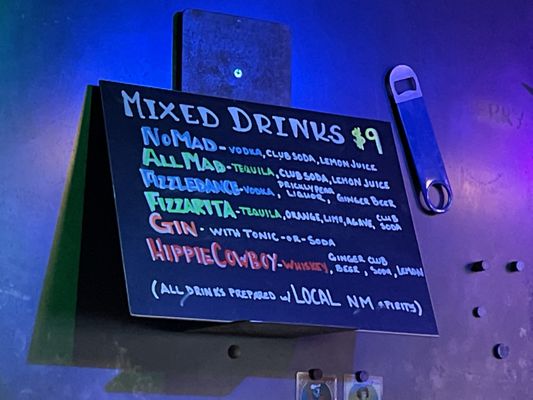 MIXED DRINKS $9
NOMAD - VODKA, CLUB SODA, LEMON JUICE
ALLMAD - TEQUILA, CLUB SODA, LEMON JUICE
FIZZLEDANCE - VODKA, PRICKLY PEAR LIQUOR, GINGER BEER
FIZZARITA - TEQUILA, ORANGE, LIME, AGAVE, CLUB SODA
GIN - WITH TONIC -OR- SODA
HIPPIE COWBOY - WHISKEY, GINGER BEER, CLUB SODA, LEMON
(ALL DRINKS PREPARED W/ LOCAL NM SPIRITS)